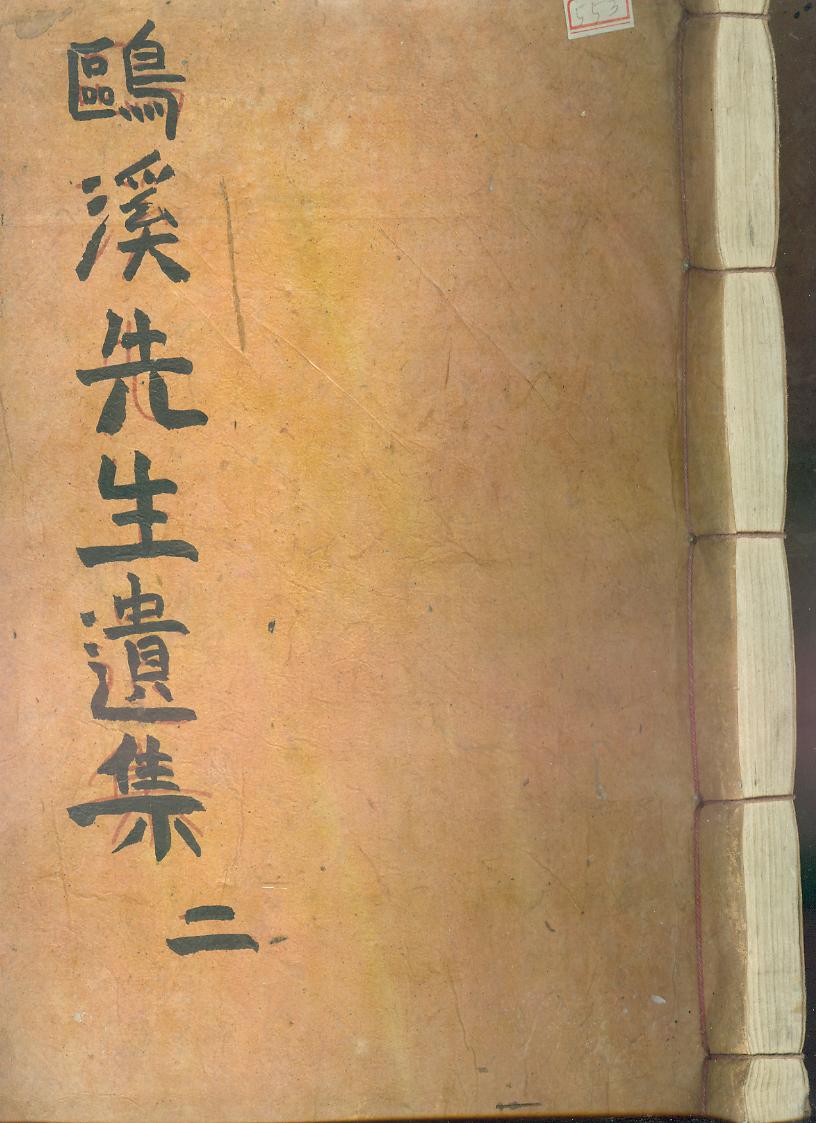 鷗溪先生遺集
二